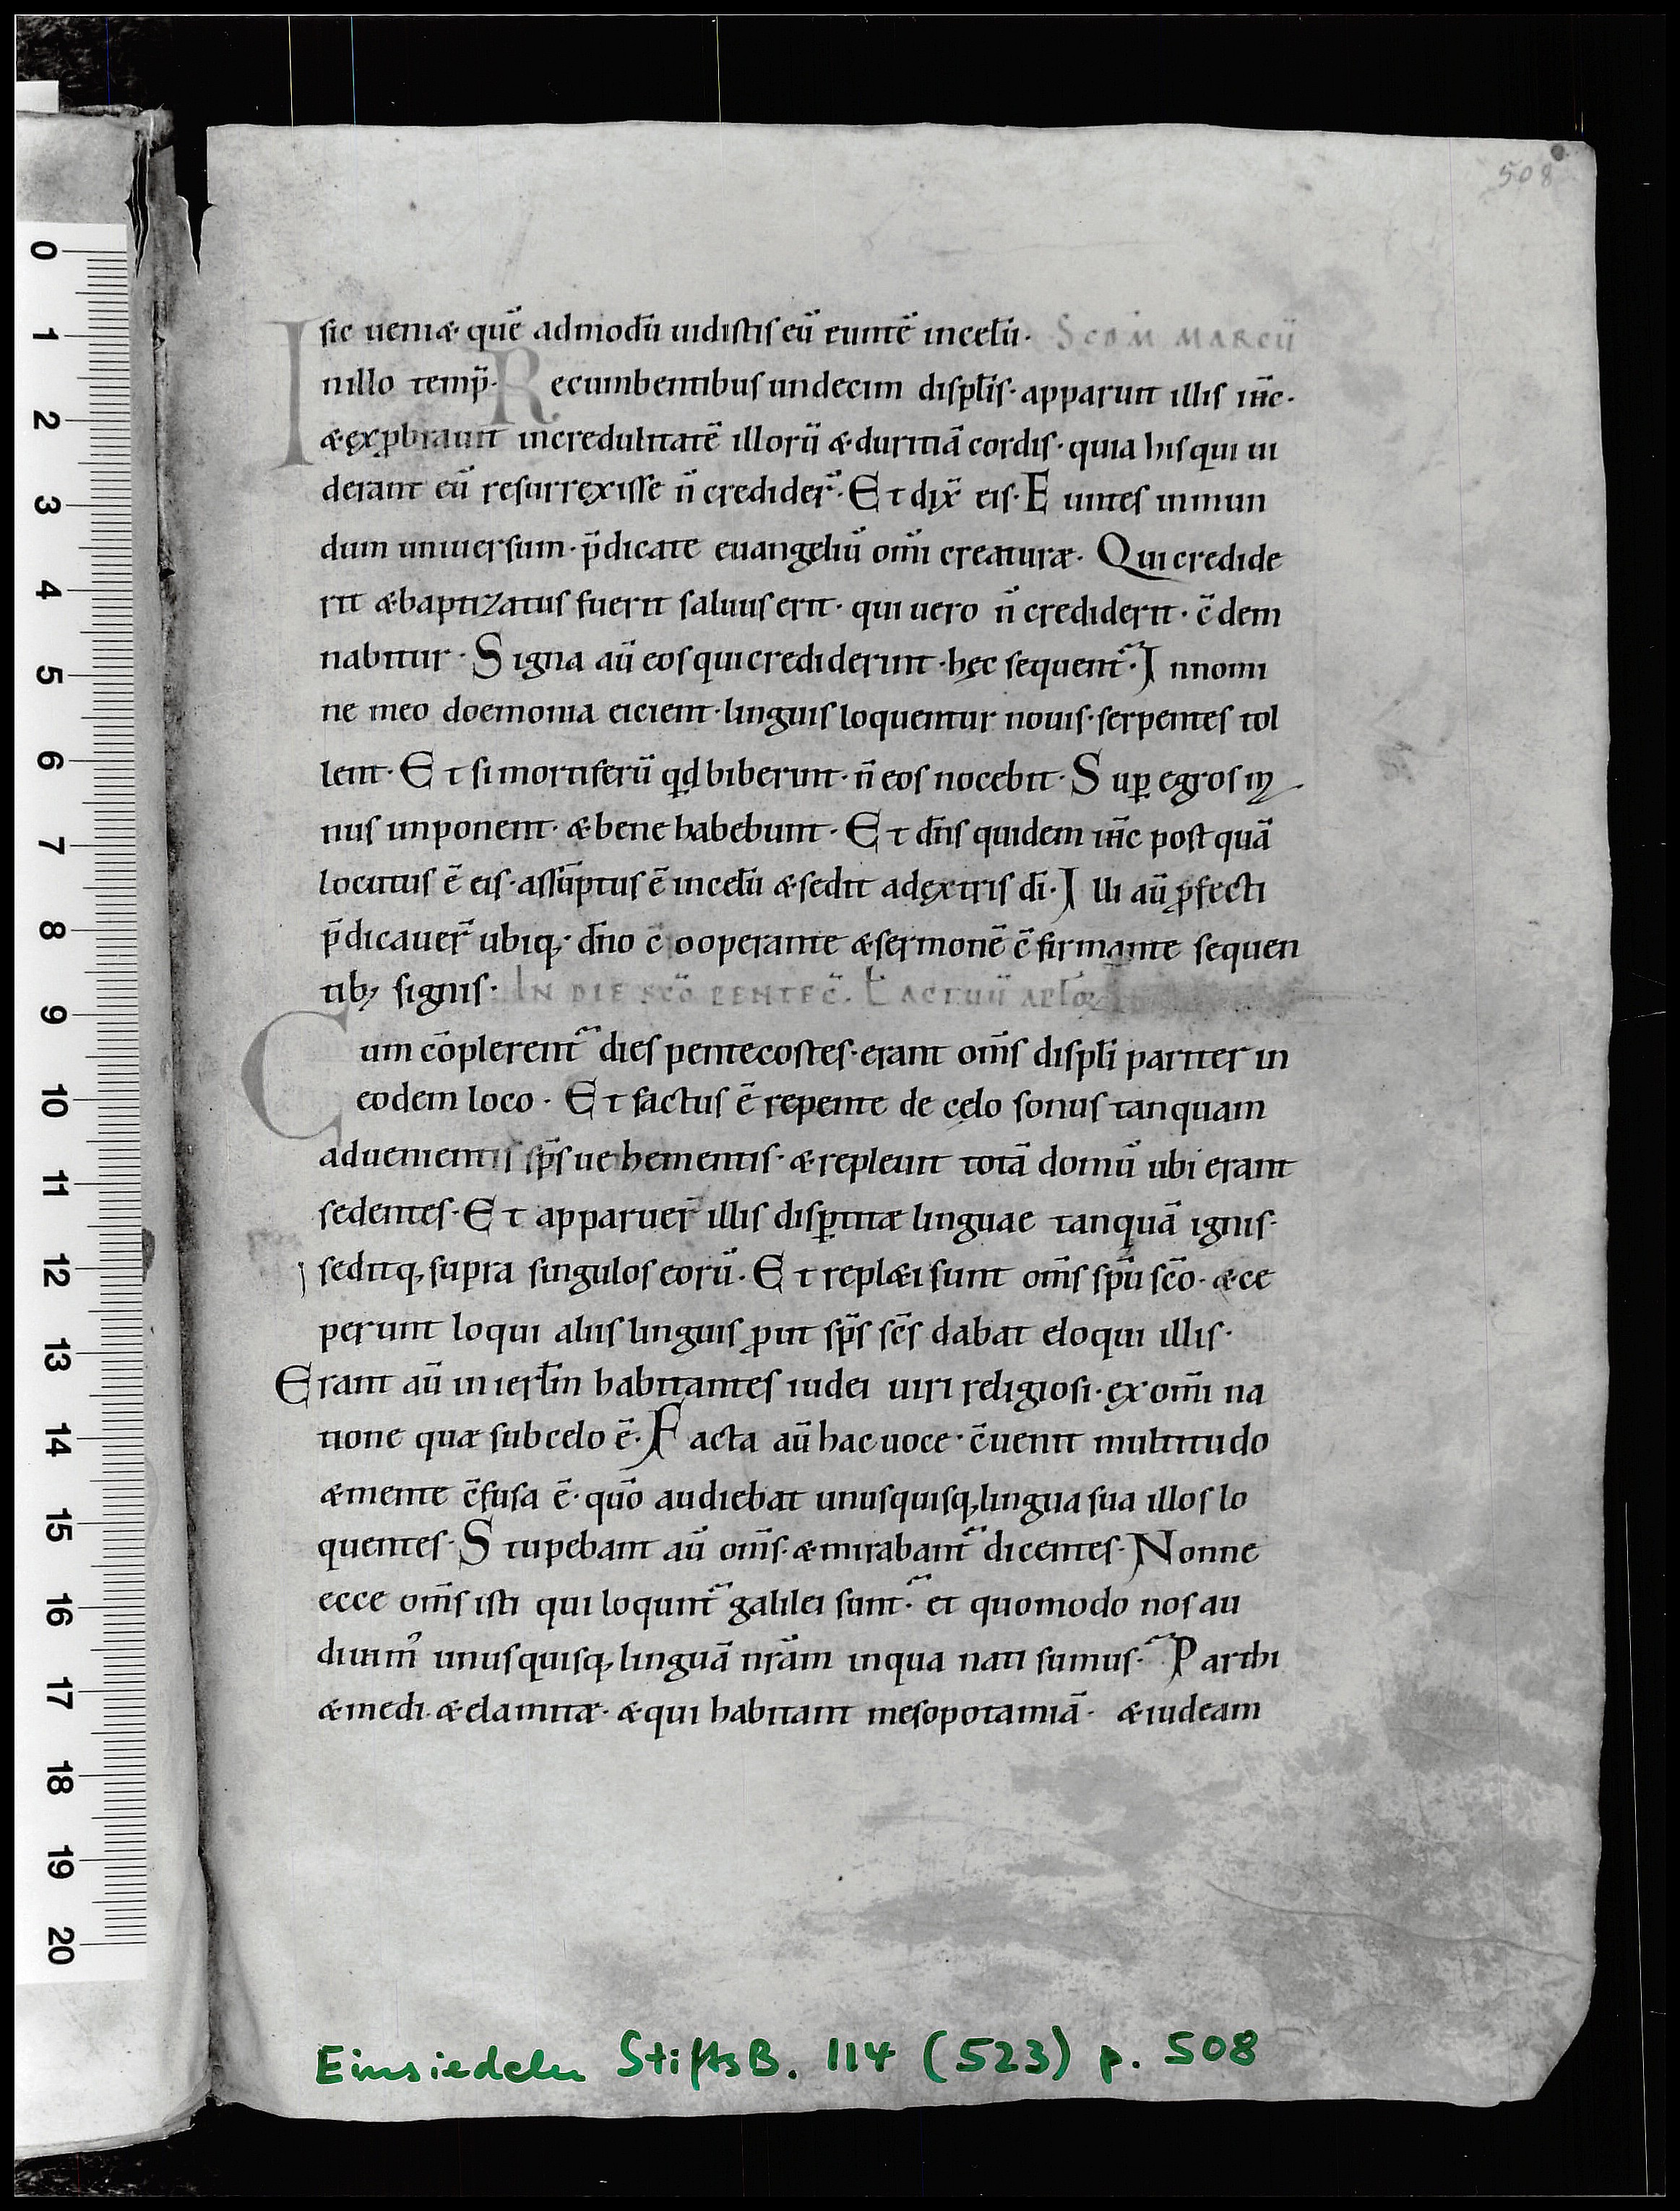 508
sic ueniæ· quē admodū uidistis eū euntē incelū· SCDM MARCŪ
Inillo temp̄· Recumbentibus undecim discplīs· apparuit illis ih̄c·
& ęxꝓbrauit incredulitatē illorū &·duritiā cordis· quia his qui ui
derant eū resurręxisse n̄ credider̄· Et dix̄ eis· Euntes inmun
dum uniuersum· p̄dicate euangeliū om̄i creaturæ· Qui credide
rit &baptizatus fuerit saluus erit· qui uero n̄ crediderit· c̄dem
nabitur· Signa aū eos qui crediderint· hęc sequent̄· Innomi
ne meo doemonia eicient· linguis loquentur nouis· serpentes tol
lent· Et si mortiferū qd biberint· n̄ eos nocebit· Suꝑ egros m
nus inponent· &bene habebunt· Et dn̄s quidem ih̄c post quā
locutus ē eis· assūptus ē incelū &sedit adęxtris dī· Illi aū ꝓfecti
p̄dicauer̄ ubiq;· dn̄o c̄ooperante &sermonē c̄firmante sequen
tib; signis· IN DIE SCŌ PENTEC̄. L̄ ACTUŪ APLOꝜ
Cum cōplerent̄ dies pentecostes· erant om̄s discpli pariter in
eodem loco· Et factus ē repente de cęlo sonus tanquam
aduenientis sp̄s uehementis· &repleuit totā domū ubi erant
sedentes· Et apparuer̄ illis disꝑtitæ linguae tanquā ignis·
seditq; supra singulos eorū· Et repl&i sunt om̄s sp̄u sc̄o· &ce
perunt loqui aliis linguis ꝓut sp̄s sc̄s dabat eloqui illis·
Erant aū in ierl̄m habitantes iudei uiri religiosi· ęx om̄i na
tione quæ sub celo ē· Facta aū hac uoce· c̄uenit multitudo
&mente c̄fusa ē· quō audiebat unusquisq; lingua sua illos lo
quentes· Stupebant aū om̄s· &mirabant̄ dicentes· Nonne
ecce om̄s isti qui loqunt̄ galilei sunt· et quomodo nos au
diuim̄ unusquisq; linguā nrām inqua nati sumus· Parthi
&medi· &elamitæ· &qui habitant mesopotamiā· &iudeam
Einsiedeln StiftsB. 114 (523) p. 508